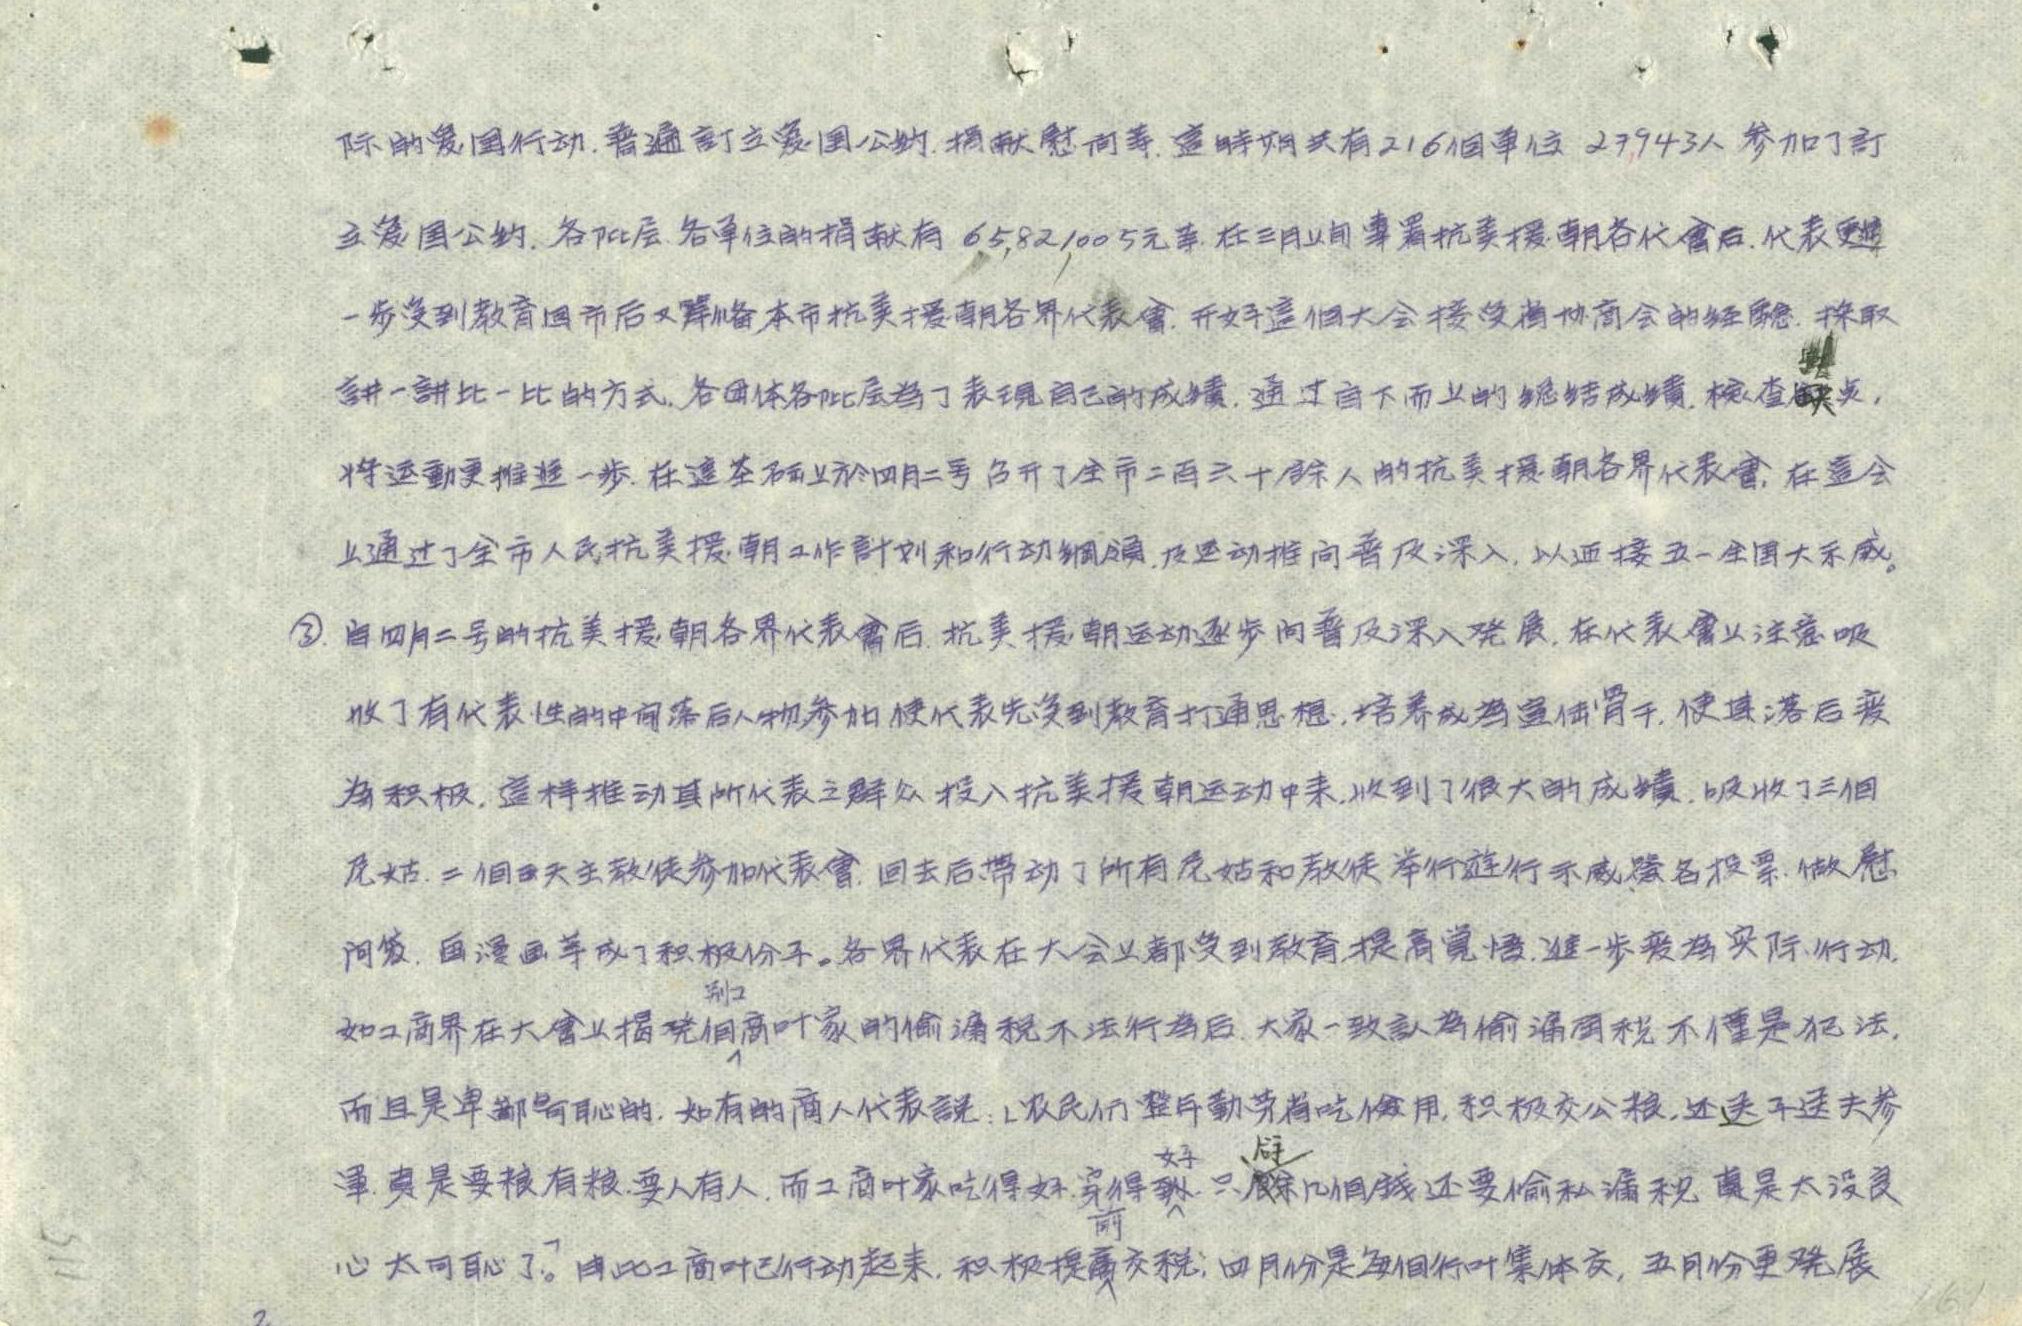 际的爱国行动.普通訂立爱国公約.捐献慰问等.這時期共有216個單位 27,943人 参加了訂
立爱国公約.各阶层.各单位的捐献有 65,821,005元率.在三月上旬專署抗美援朝各代會后.代表更進
一步受到教育回市后又準备本市抗美援朝各界代表會.开好這個大会接受首协商会的经驗.採取
講一講比一比的方式.各团体各阶层為了表現自己的成績.通过自下而上的總結成績.檢查缺点,
将运動更推進一步.在這基础上於四月二号召开了全市二百六十餘人的抗美援朝各界代表會.在這会
上通过了全市人民抗美援朝工作計划和行动綱領.及运动推向普及深入.以迎接五一全国大示威。
③.自四月二号的抗美援朝各界代表會后.抗美援朝运动逐步向普及深入発展.在代表會上注意吸
收了有代表性的中间落后人物参加使代表先受到教育打通思想.培养成為宣传骨干.使其落后変
為积极.這样推动其所代表之群众投入抗美援朝运动中来.收到了很大的成績.吸收了三個
尼姑.二個天主教徒参加代表會.回去后带动了所有尼姑和教徒举行遊行示威簽名投票.做慰
问袋.画漫画等成了积极份子。各界代表在大会上都受到教育.提高覚悟.進一步変為实际行动.
如工商界在大會上揭発個别工商叶家的偷漏税不法行為后.大家一致認為偷漏国税不僅是犯法.
而且是卑鄙可恥的.如有的商人代表說:「农民们整年勤劳省吃儉用.积极交公粮.还送子送夫参
軍.真是要粮有粮.要人有人.而工商叶家吃得好.穿得好.只賺几個錢还要偷私漏税真是太没良
心太可恥了」。由此工商叶已行动起来.积极提前交税;四月份是每個行叶集体交,五月份更発展
2
115
161